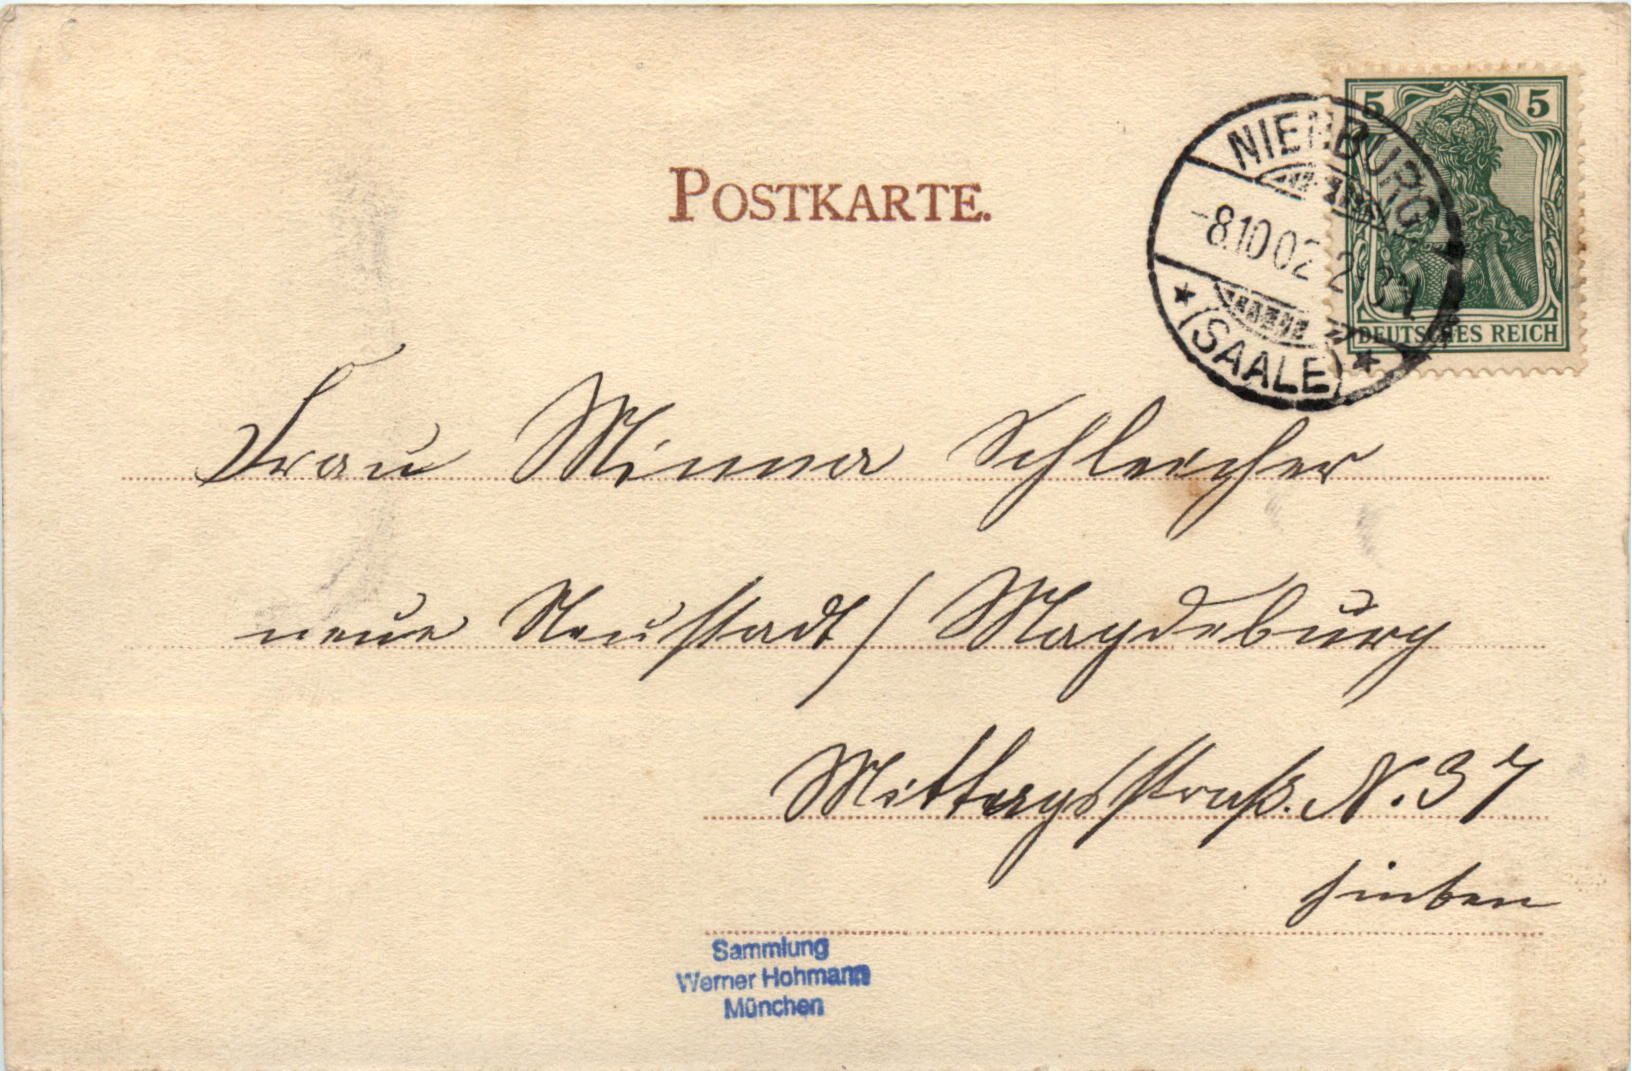 POSTKARTE.
5 5
DEUTSCHES REICH
NIENBURG
-8.10.02
(SAALE)
Frau Minna Schleicher
neue Neustadt / Magdeburg
Mittagsstraß. N. 37
sieben
Sammlung
Werner Hohmann
München